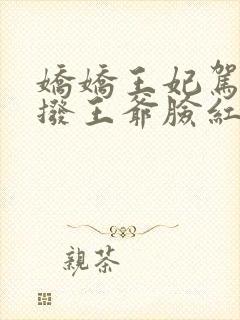 嬌嬌王妃駕
撥王爺臉紅
親茶